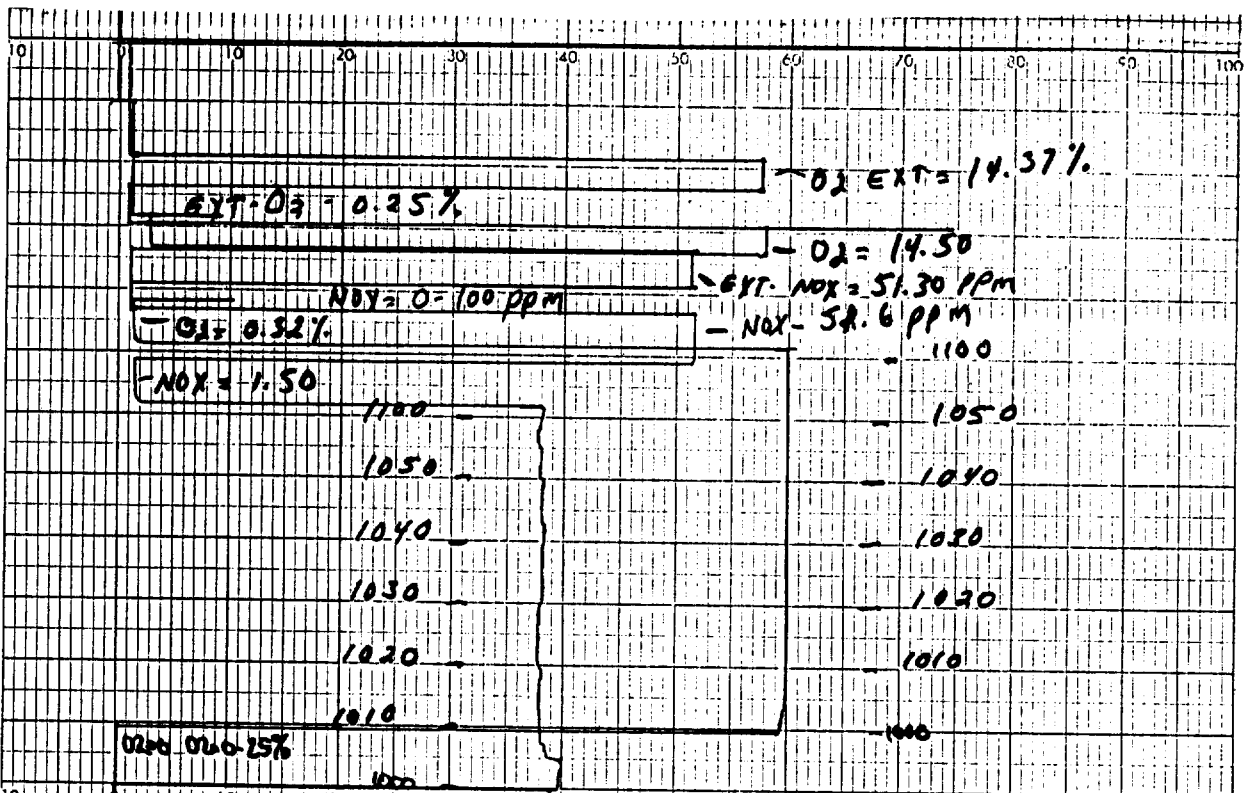 10 0 10 20 30 40 50 60 70 80 90 100
O2 EXT = 14.37%
EXT-O2 = 0.25%
O2 = 14.50
EXT. NOX = 51.30 PPM
NOX = 0-100 PPM
O2 = 0.32%
1100
NOX = 1.50
1100
1050
1050
1040
1040
1030
1030
1020
1020
1010
1010
1000
0-25%
1000